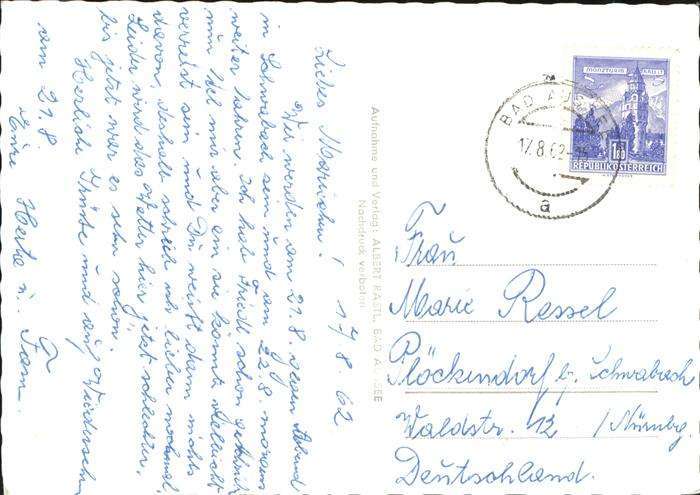 Liebes Mariechen! 17.8.62
Wir werden am 21.8. gegen Abend
in Schwabach sein und am 22.8. morgens
weiter fahren. Ich habe Friedl schon geschrieb.
nun fiel mir aber ein sie könnte vielleicht
verreist sein und Du weißt dann nichts
davon, deshalb schreib ich lieber nochmal.
Leider wird das Wetter hier jetzt schlechter,
bis jetzt war es sehr schön.
Herzliche Grüße und auf Wiedersehn
am 21.8.
Eure Herta u. Fam.
Aufnahme und Verlag: ALBERT RASTL, BAD AUSSEE
Nachdruck verboten
MÜNZTURM HALL I.T.
1.80
REPUBLIK ÖSTERREICH
BAD AUSSEE
17.8.62
a
Frau
Marie Ressel
Plöckendorf b. Schwabach
Waldstr. 12 / Nürnbg.
Deutschland.